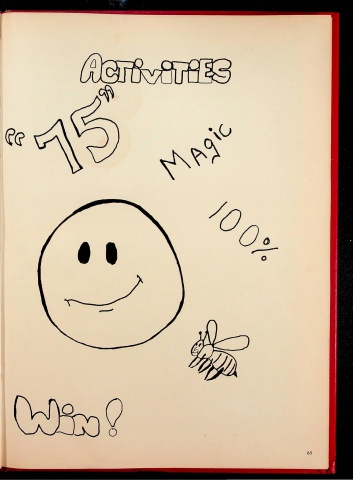 ACTiViTiES
"75"
MAgic
100%
Win!
63